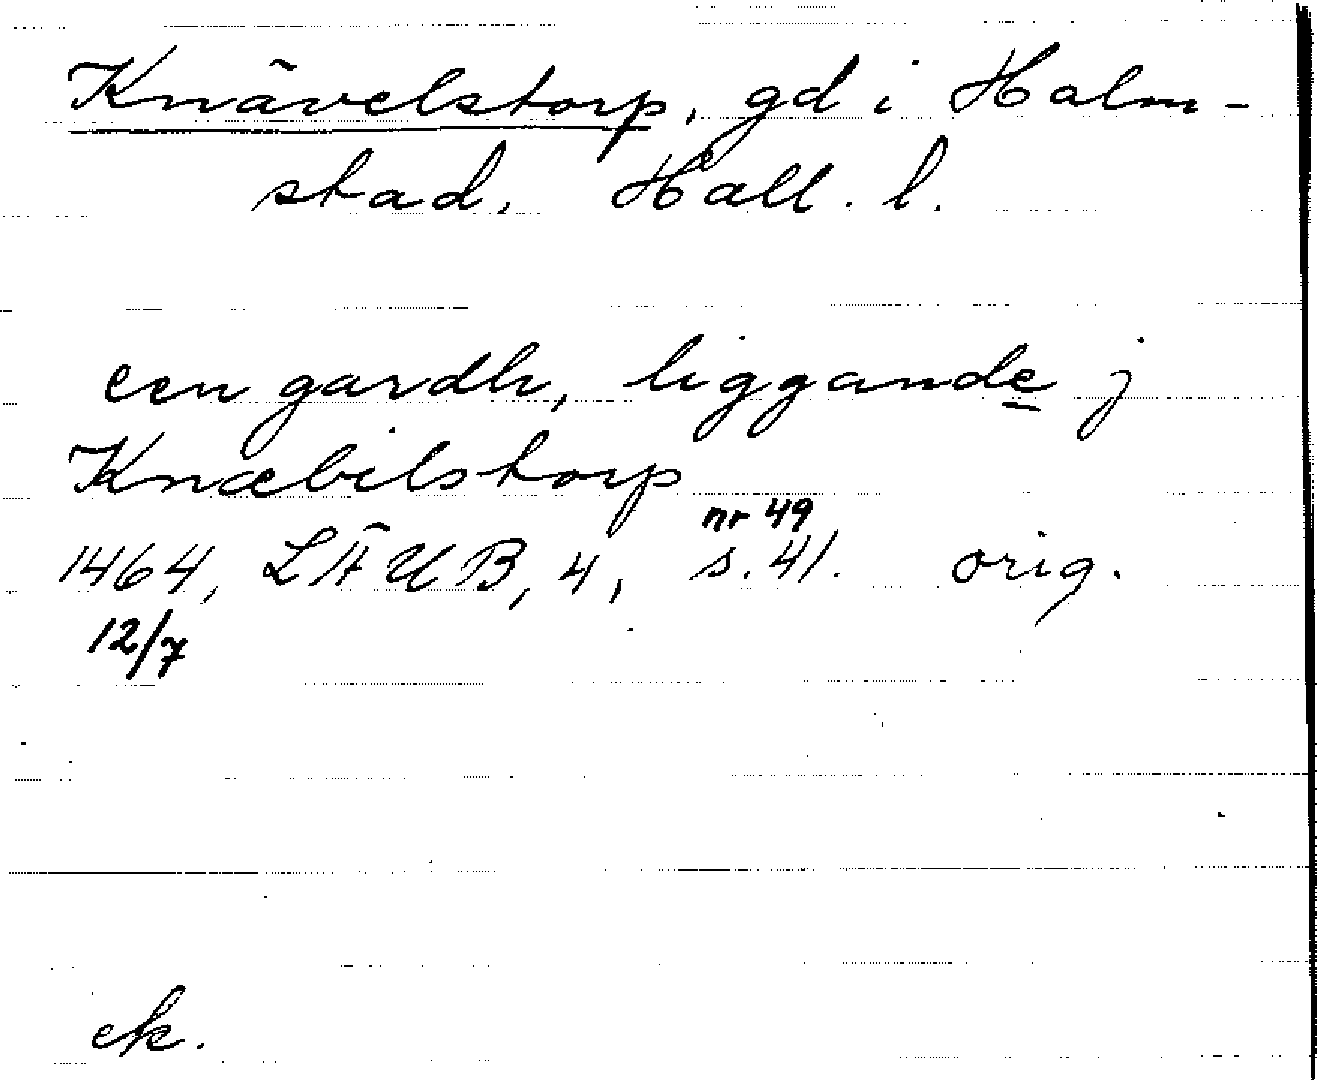 Knävelstorp, gd i Halm-
stad, Hall. l.
een gardh, liggande j
Knæbilstorp
nr 49
1464, LÄUB, 4, s. 41. orig.
12/7
ek.